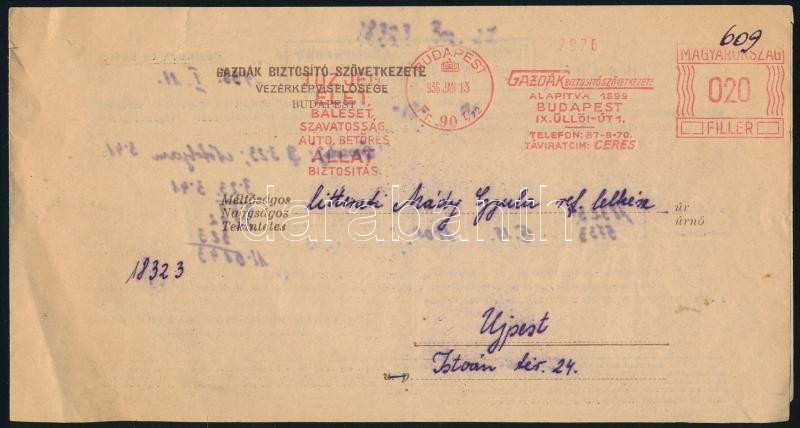 609
2976
GAZDÁK BIZTOSITÓ SZÖVETKEZETE
VEZÉRKÉPVISELŐSÉGE
BUDAPEST
TŰZ JÉG
ÉLET
BALESET,
SZAVATOSSÁG,
AUTO, BETÖRÉS
ÁLLAT
BIZTOSITÁS
BUDAPEST
936 JAN 13
GAZDÁK BIZTOSITÓ SZÖVETKEZETE
ALAPITVA 1899
BUDAPEST
IX. ÜLLŐI-ÚT 1.
TELEFON: 87-8-70.
TÁVIRATCIM: CERES
MAGYARORSZÁG
020
FILLÉR
Méltóságos
Nagyságos
Tekintetes
Mády Gyula ref. lelkész
úr
úrnő
18323
Ujpest
István tér. 24.
u. p.
darabanth